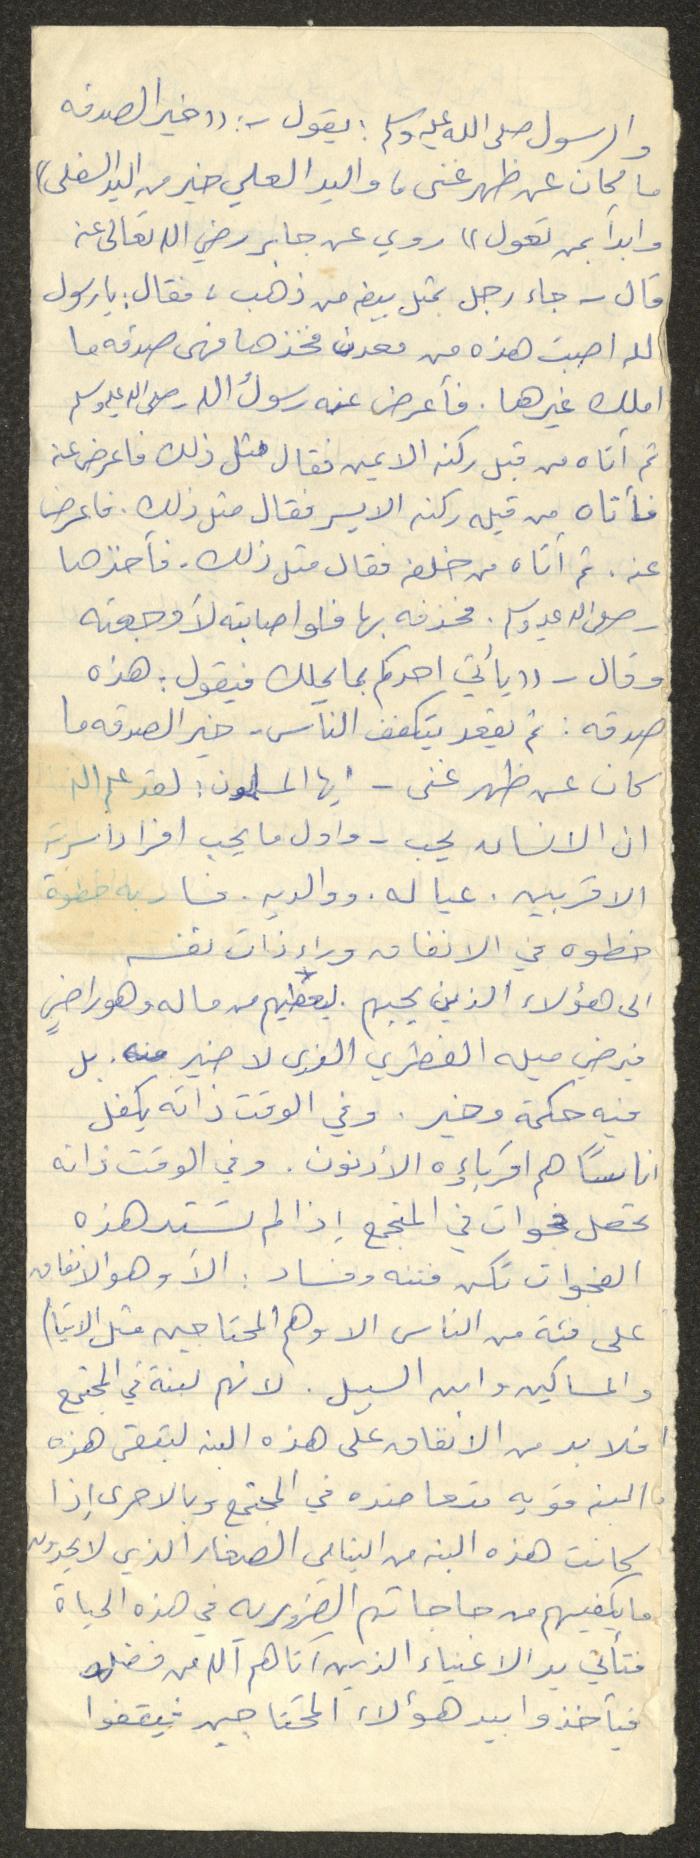 والرسول صلى الله عليه وسلم : يقول -: (( خير الصدقه
ما كان عن ظهر غنى ، واليد العلي خير من اليد السفلى ))
وابدأ بمن تعول )) روي عن جابر رضي الله تعالى عنه
قال - جاء رجل بمثل بيضه من ذهب ، فقال : يا رسول
الله اصبت هذه من معدن فخذها فهي صدقه ما
املك غيرها . فأعرض عنه رسول الله صلى الله عليه وسلم
ثم أتاه من قبل ركنه الايمن فقال مثل ذلك فاعرض عنه
فأتاه من قبل ركنه الايسر فقال مثل ذلك . فاعرض
عنه . ثم أتاه من خلفه فقال مثل ذلك . فأخذها
صلى الله عليه وسلم . فحذفه بها فلو اصابته لأوجعته
وقال - (( يأتي احدكم بما يملك فيقول : هذه
صدقه : ثم يقعد يتكفف الناس - خير الصدقه ما
كان عن ظهر غنى - ايها المسلمون : لقد علم الله
ان الانسان يحب - واول ما يحب افراد اسرته
الاقربين . عياله . ووالديه . فسار به خطوة
خطوه في الانفاق وراء ذات نفسه
الى هؤلاء الذين يحبهم . ليعطيهم من ماله وهو راضٍ
فيرضي ميله الفطري الذي لا ضير منه . بل
فيه حكمة وخير . وفي الوقت ذاته يكفل
اناسًا هم اقرباؤه الأدنون . وفي الوقت ذاته
تحصل فجوات في المجتمع إذا لم تستد هذه
الفجوات تكن فتنه وفساد : الأ وهو الانفاق
على فئة من الناس الا وهم المحتاجين مثل الايتام
والمساكين وابن السبيل . لانهم لبنة في المجتمع
فلا بد من الانفاق على هذه البنه لتبقى هذه
البنه قويه متعاضده في المجتمع وبالاحرى إذا
كانت هذه البنه من اليتامى الصغار الذي لا يجدون
ما يكفيهم من حاجاتهم الضروريه في هذه الحياة
فتأتي يد الاغنياء الذين آتاهم الله من فضله
فيأخذوا بيد هؤلاء المحتاجين فيقفوا